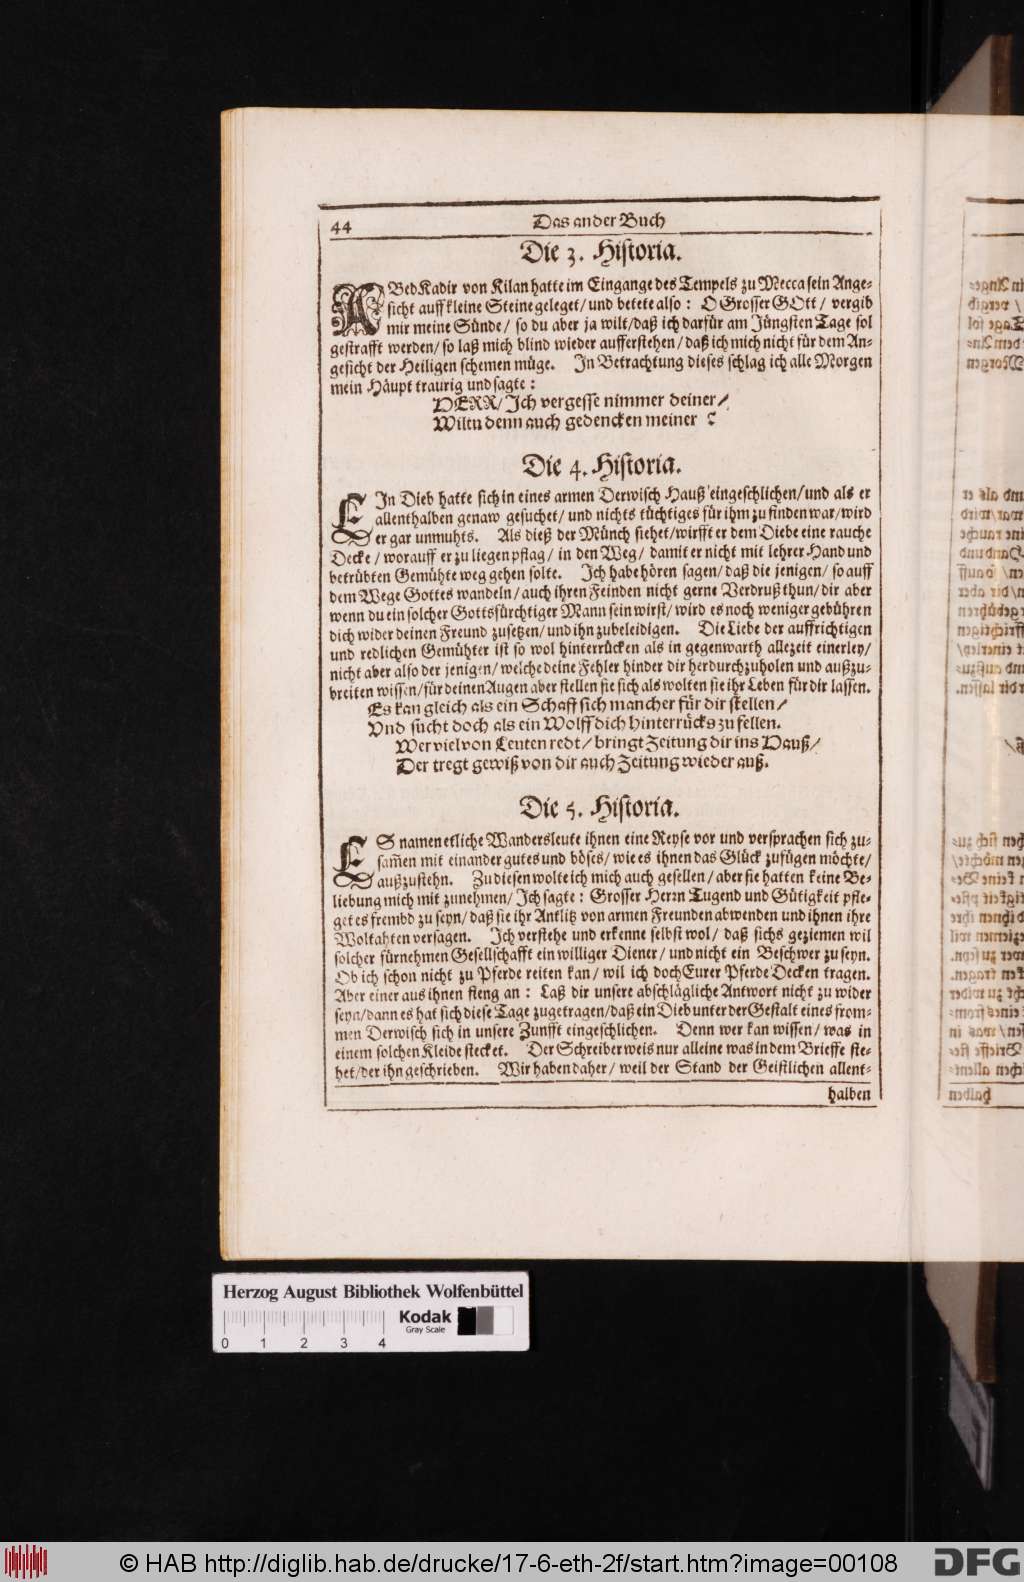 44
Das ander Buch
Die 3. Historia.
ABed Kadir von Kilan hatte im Eingange des Tempels zu Mecca sein Ange-
sicht auff kleine Steine geleget/ und betete also: O Grosser GOtt/ vergib
mir meine Sünde/ so du aber ja wilt/ daß ich darfür am Jüngsten Tage sol
gestrafft werden/ so laß mich blind wieder aufferstehen/ daß ich mich nicht für dem An-
gesicht der Heiligen schemen müge. In Betrachtung dieses schlag ich alle Morgen
mein Häupt traurig und sagte:
HERR/ Ich vergesse nimmer deiner/
Wiltu denn auch gedencken meiner?
Die 4. Historia.
EIn Dieb hatte sich in eines armen Derwisch Hauß eingeschlichen/ und als er
allenthalben genaw gesuchet/ und nichts tüchtiges für ihm zu finden war/ wird
er gar unmuhts. Als dieß der Münch siehet/ wirfft er dem Diebe eine rauche
Decke/ worauff er zu liegen pflag/ in den Weg/ damit er nicht mit lehrer Hand und
betrübten Gemühte weg gehen solte. Ich habe hören sagen/ daß die jenigen/ so auff
dem Wege Gottes wandeln/ auch ihren Feinden nicht gerne Verdruß thun/ dir aber
wenn du ein solcher Gottsfürchtiger Mann sein wirst/ wird es noch weniger gebühren
dich wider deinen Freund zusetzen/ und ihn zubeleidigen. Die Liebe der auffrichtigen
und redlichen Gemühter ist so wol hinterrücken als in gegenwarth allezeit einerley/
nicht aber also der jenigen/ welche deine Fehler hinder dir herdurchzuholen und außzu-
breiten wissen/ für deinen Augen aber stellen sie sich als wolten sie ihr Leben für dir lassen.
Es kan gleich als ein Schaff sich mancher für dir stellen/
Vnd sucht doch als ein Wolff dich hinterrücks zu fellen.
Wer viel von Leuten redt/ bringt Zeitung dir ins Hauß/
Der tregt gewiß von dir auch Zeitung wieder auß.
Die 5. Historia.
ES namen etliche Wandersleute ihnen eine Reyse vor und versprachen sich zu-
sam̃en mit einander gutes und böses/ wie es ihnen das Glück zufügen möchte/
außzustehn. Zu diesen wolte ich mich auch gesellen/ aber sie hatten keine Be-
liebung mich mit zunehmen/ Ich sagte: Grosser Herrn Tugend und Gütigkeit pfle-
get es frembd zu seyn/ daß sie ihr Antlitz von armen Freunden abwenden und ihnen ihre
Wolthaten versagen. Ich verstehe und erkenne selbst wol/ daß sichs geziemen wil
solcher fürnehmen Gesellschafft ein williger Diener/ und nicht ein Beschwer zu seyn.
Ob ich schon nicht zu Pferde reiten kan/ wil ich doch Eurer Pferde Decken tragen.
Aber einer aus ihnen fieng an: Laß dir unsere abschlägliche Antwort nicht zu wider
seyn/ dann es hat sich diese Tage zugetragen/ daß ein Dieb unter der Gestalt eines from-
men Derwisch sich in unsere Zunfft eingeschlichen. Denn wer kan wissen/ was in
einem solchen Kleide stecket. Der Schreiber weis nur alleine was in dem Brieffe ste-
het/ der ihn geschrieben. Wir haben daher/ weil der Stand der Geistlichen allent-
halben
Herzog August Bibliothek Wolfenbüttel
Kodak
Gray Scale
0 1 2 3 4
© HAB http://diglib.hab.de/drucke/17-6-eth-2f/start.htm?image=00108
DFG